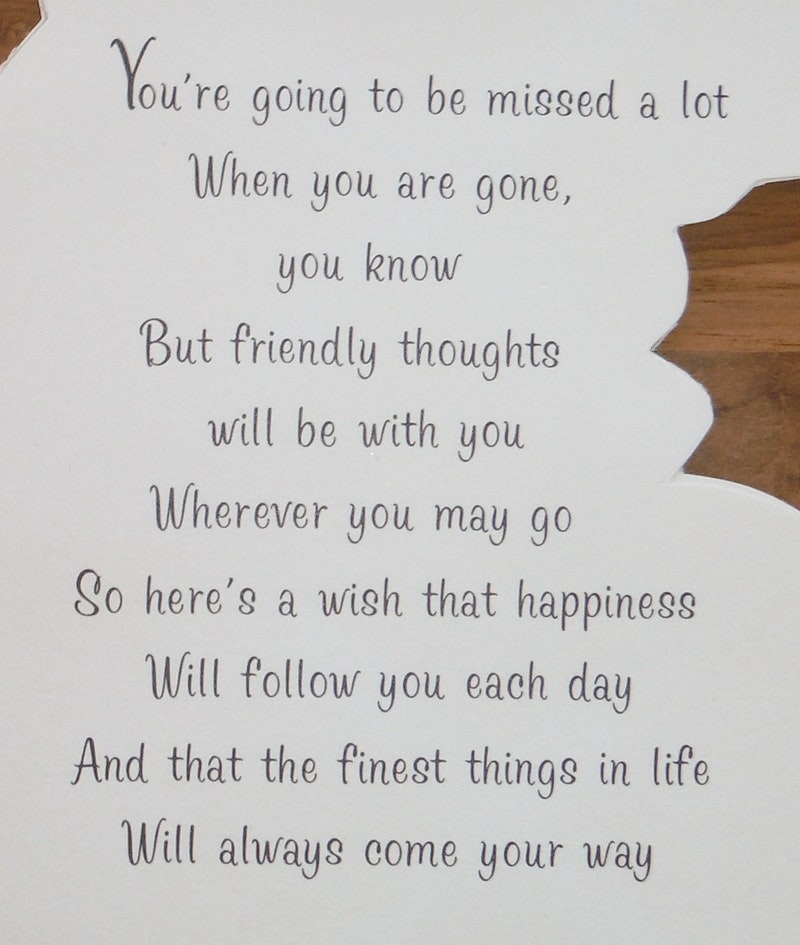 You're going to be missed a lot
When you are gone,
you know
But friendly thoughts
will be with you
Wherever you may go
So here's a wish that happiness
Will follow you each day
And that the finest things in life
Will always come your way